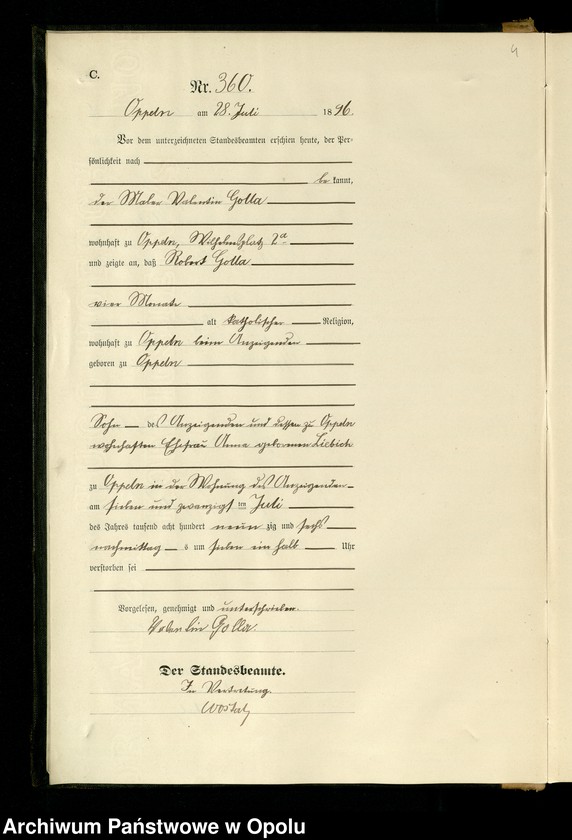 4
C.
Nr. 360.
Oppeln am 28. Juli 1896.
Vor dem unterzeichneten Standesbeamten erschien heute, der Per-
sönlichkeit nach
bekannt,
der Maler Valentin Golla
wohnhaft zu Oppeln, Wilhelmsplatz 2a
und zeigte an, daß Robert Golla
vier Monate
alt katholischer Religion,
wohnhaft zu Oppeln beim Anzeigenden
geboren zu Oppeln
Sohn des Anzeigenden und dessen zu Oppeln
wohnhaften Ehefrau Anna geborenen Liebich
zu Oppeln in der Wohnung des Anzeigenden
am sieben und zwanzigsten Juli
des Jahres tausend acht hundert neunzig und sechs
nachmittags um sieben ein halb Uhr
verstorben sei
Vorgelesen, genehmigt und unterschrieben.
Valentin Golla.
Der Standesbeamte.
In Vertretung.
Archiwum Państwowe w Opolu